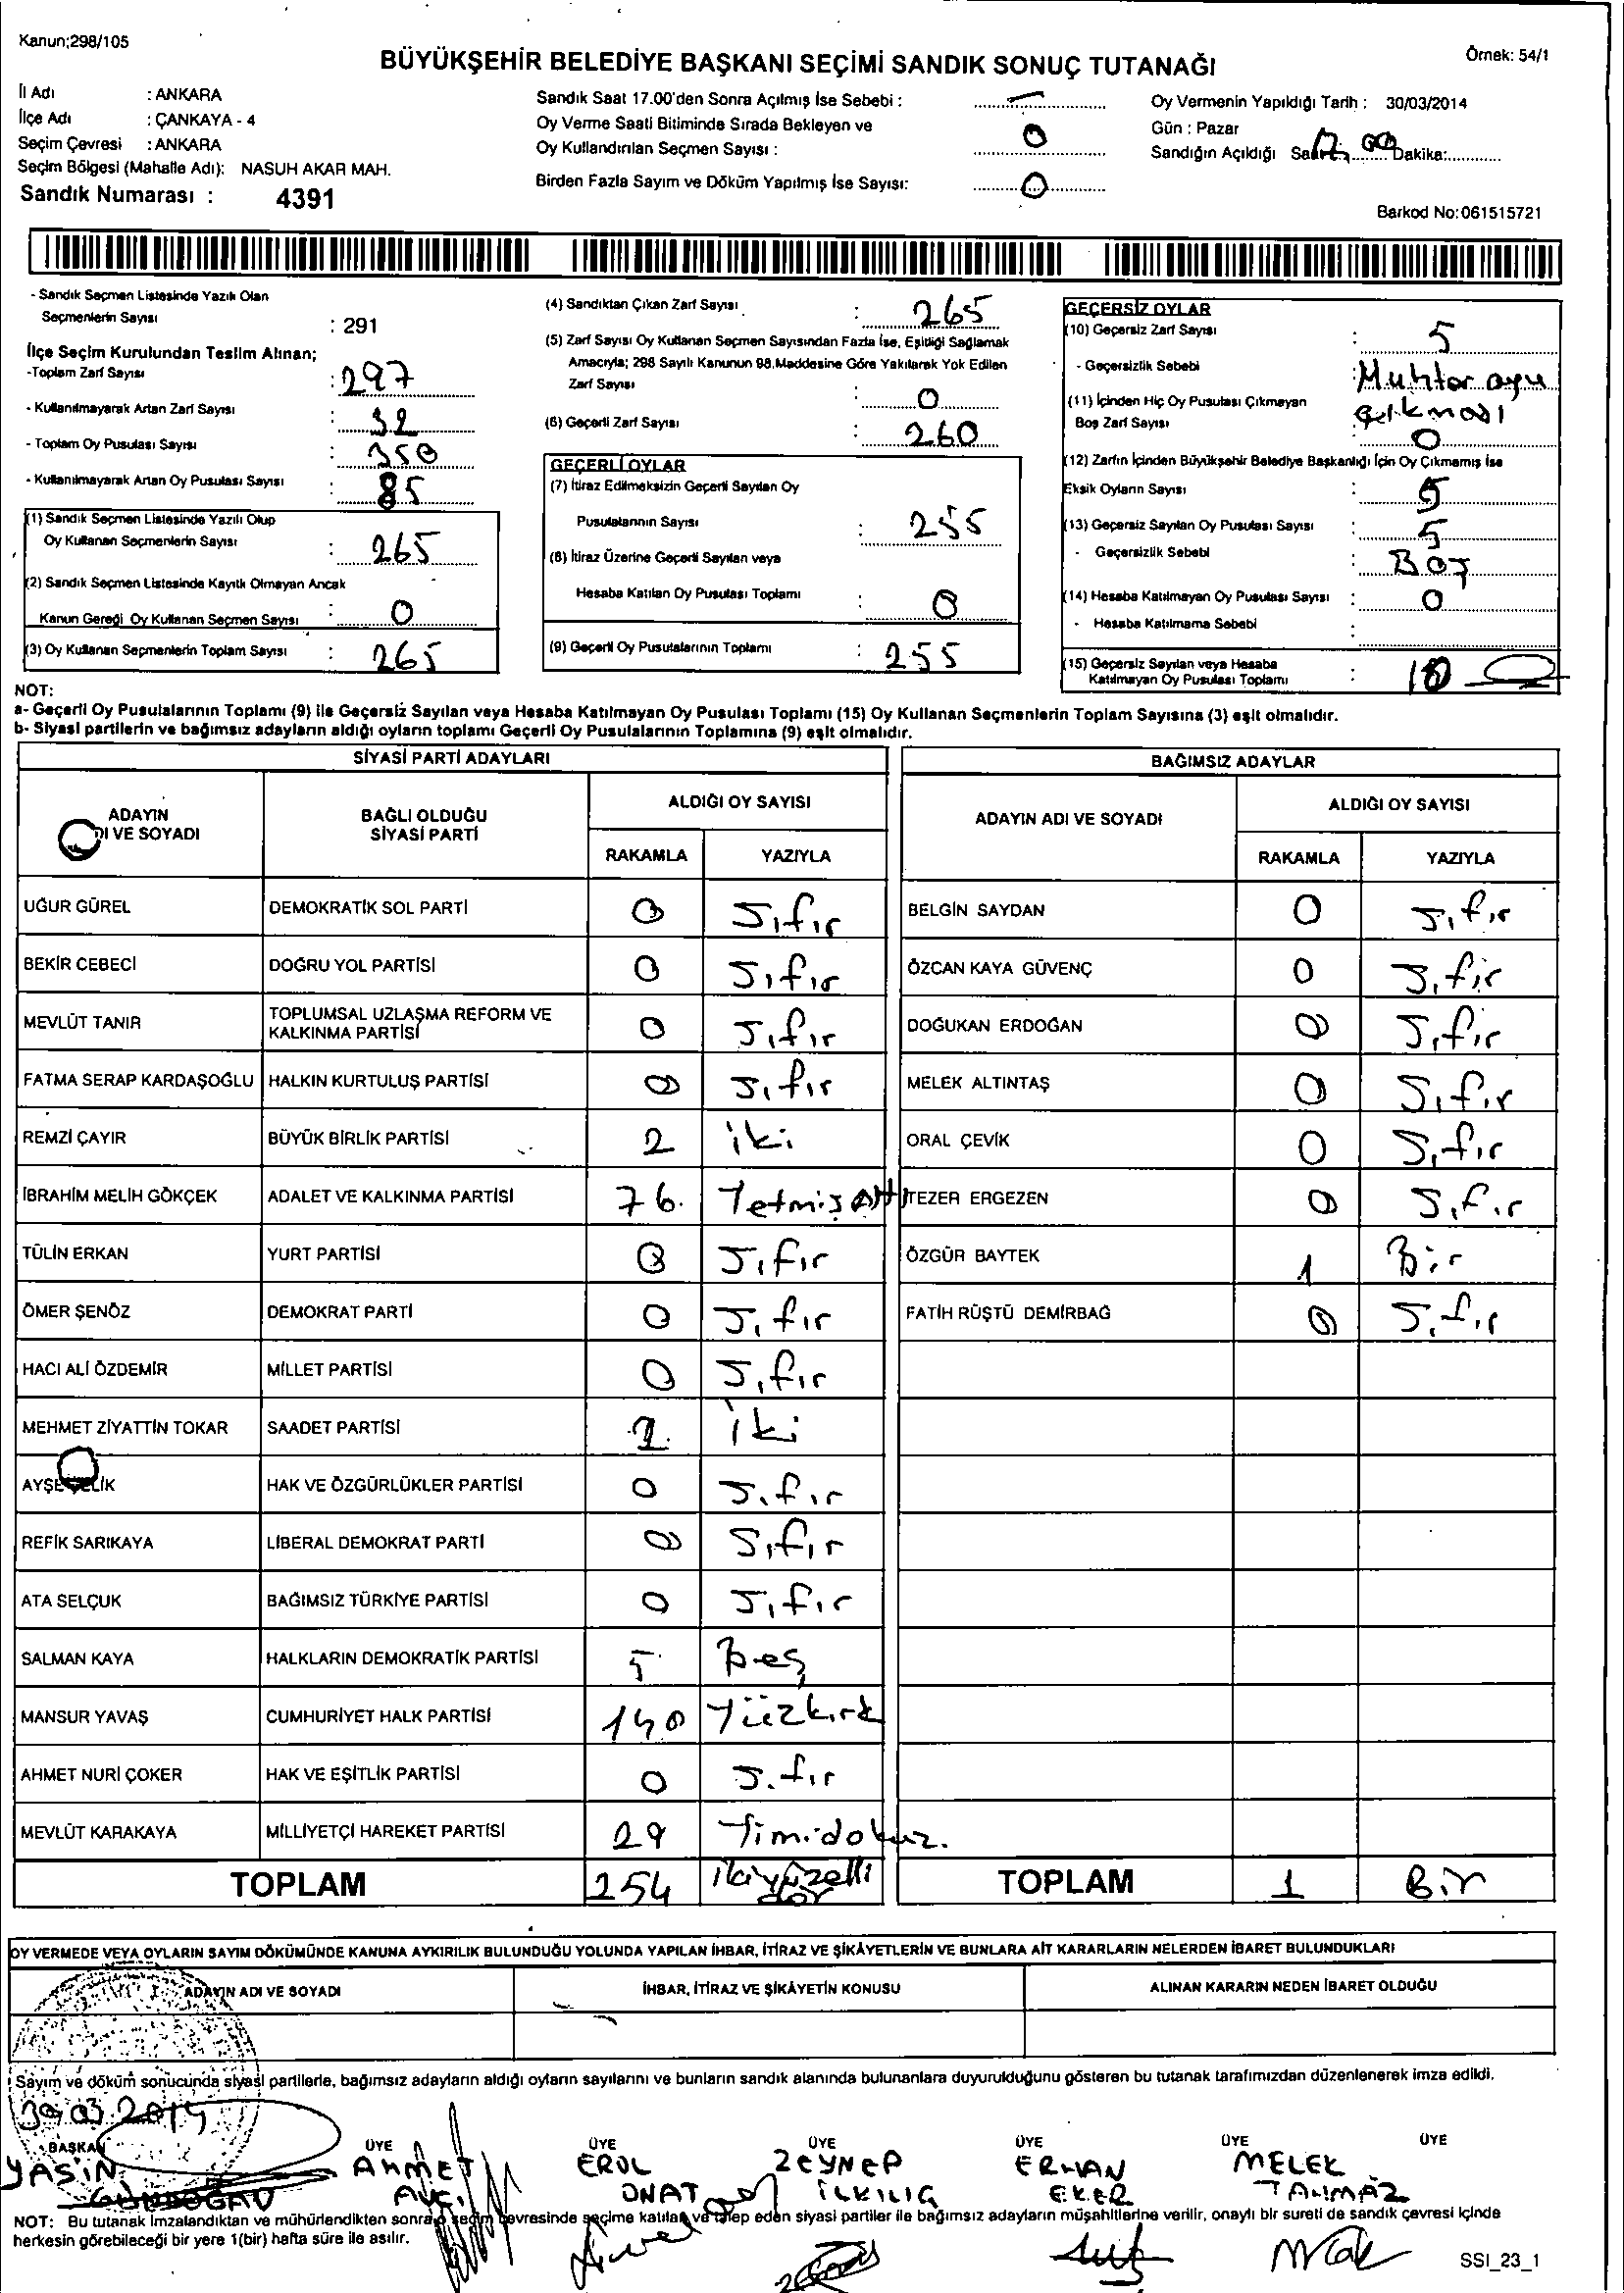 Kanun;298/105
Örnek: 54/1
BÜYÜKŞEHİR BELEDİYE BAŞKANI SEÇİMİ SANDIK SONUÇ TUTANAĞI
İl Adı : ANKARA
İlçe Adı : ÇANKAYA - 4
Seçim Çevresi : ANKARA
Seçim Bölgesi (Mahalle Adı): NASUH AKAR MAH.
Sandık Numarası : 4391
Sandık Saat 17.00'den Sonra Açılmış İse Sebebi :
Oy Verme Saati Bitiminde Sırada Bekleyen ve
Oy Kullandırılan Seçmen Sayısı : 0
Birden Fazla Sayım ve Döküm Yapılmış İse Sayısı: 0
Oy Vermenin Yapıldığı Tarih : 30/03/2014
Gün : Pazar
Sandığın Açıldığı Saat: 17 00 Dakika:
Barkod No:061515721
- Sandık Seçmen Listesinde Yazılı Olan
Seçmenlerin Sayısı : 291
İlçe Seçim Kurulundan Teslim Alınan;
-Toplam Zarf Sayısı : 297
- Kullanılmayarak Artan Zarf Sayısı : 32
- Toplam Oy Pusulası Sayısı : 350
- Kullanılmayarak Artan Oy Pusulası Sayısı : 85
(1) Sandık Seçmen Listesinde Yazılı Olup
Oy Kullanan Seçmenlerin Sayısı : 265
(2) Sandık Seçmen Listesinde Kayıtlı Olmayan Ancak
Kanun Gereği Oy Kullanan Seçmen Sayısı : 0
(3) Oy Kullanan Seçmenlerin Toplam Sayısı : 265
(4) Sandıktan Çıkan Zarf Sayısı : 265
(5) Zarf Sayısı Oy Kullanan Seçmen Sayısından Fazla İse, Eşitliği Sağlamak
Amacıyla; 298 Sayılı Kanunun 98.Maddesine Göre Yakılarak Yok Edilen
Zarf Sayısı : 0
(6) Geçerli Zarf Sayısı : 260
GEÇERLİ OYLAR
(7) İtiraz Edilmeksizin Geçerli Sayılan Oy
Pusulalarının Sayısı : 255
(8) İtiraz Üzerine Geçerli Sayılan veya
Hesaba Katılan Oy Pusulası Toplamı : 0
(9) Geçerli Oy Pusulalarının Toplamı : 255
GEÇERSİZ OYLAR
(10) Geçersiz Zarf Sayısı : 5
- Geçersizlik Sebebi : Muhtar oyu
çıkması
(11) İçinden Hiç Oy Pusulası Çıkmayan
Boş Zarf Sayısı : 0
(12) Zarfın İçinden Büyükşehir Belediye Başkanlığı İçin Oy Çıkmamış İse
Eksik Oyların Sayısı : 5
(13) Geçersiz Sayılan Oy Pusulası Sayısı : 5
- Geçersizlik Sebebi : Boş
(14) Hesaba Katılmayan Oy Pusulası Sayısı : 0
- Hesaba Katılmama Sebebi :
(15) Geçersiz Sayılan veya Hesaba
Katılmayan Oy Pusulası Toplamı : 10
NOT:
a- Geçerli Oy Pusulalarının Toplamı (9) ile Geçersiz Sayılan veya Hesaba Katılmayan Oy Pusulası Toplamı (15) Oy Kullanan Seçmenlerin Toplam Sayısına (3) eşit olmalıdır.
b- Siyasi partilerin ve bağımsız adayların aldığı oyların toplamı Geçerli Oy Pusulalarının Toplamına (9) eşit olmalıdır.
SİYASİ PARTİ ADAYLARI
ADAYIN
DI VE SOYADI
BAĞLI OLDUĞU
SİYASİ PARTİ
ALDIĞI OY SAYISI
RAKAMLA YAZIYLA
UĞUR GÜREL DEMOKRATİK SOL PARTİ 0 Sıfır
BEKİR CEBECİ DOĞRU YOL PARTİSİ 0 Sıfır
MEVLÜT TANIR TOPLUMSAL UZLAŞMA REFORM VE
KALKINMA PARTİSİ 0 Sıfır
FATMA SERAP KARDAŞOĞLU HALKIN KURTULUŞ PARTİSİ 0 Sıfır
REMZİ ÇAYIR BÜYÜK BİRLİK PARTİSİ 2 iki
İBRAHİM MELİH GÖKÇEK ADALET VE KALKINMA PARTİSİ 76. Yetmişaltı
TÜLİN ERKAN YURT PARTİSİ 0 Sıfır
ÖMER ŞENÖZ DEMOKRAT PARTİ 0 Sıfır
HACI ALİ ÖZDEMİR MİLLET PARTİSİ 0 Sıfır
MEHMET ZİYATTİN TOKAR SAADET PARTİSİ 2 İki
AYŞE ÇELİK HAK VE ÖZGÜRLÜKLER PARTİSİ 0 Sıfır
REFİK SARIKAYA LİBERAL DEMOKRAT PARTİ 0 Sıfır
ATA SELÇUK BAĞIMSIZ TÜRKİYE PARTİSİ 0 Sıfır
SALMAN KAYA HALKLARIN DEMOKRATİK PARTİSİ 5 Beş
MANSUR YAVAŞ CUMHURİYET HALK PARTİSİ 140 Yüzkırk
AHMET NURİ ÇOKER HAK VE EŞİTLİK PARTİSİ 0 Sıfır
MEVLÜT KARAKAYA MİLLİYETÇİ HAREKET PARTİSİ 29 Yirmidokuz.
TOPLAM 254 ikiyüzelli
dör
BAĞIMSIZ ADAYLAR
ADAYIN ADI VE SOYADI
ALDIĞI OY SAYISI
RAKAMLA YAZIYLA
BELGİN SAYDAN 0 Sıfır
ÖZCAN KAYA GÜVENÇ 0 Sıfır
DOĞUKAN ERDOĞAN 0 Sıfır
MELEK ALTINTAŞ 0 Sıfır
ORAL ÇEVİK 0 Sıfır
TEZER ERGEZEN 0 Sıfır
ÖZGÜR BAYTEK 1 Bir
FATİH RÜŞTÜ DEMİRBAĞ 0 Sıfır
TOPLAM 1 Bir
OY VERMEDE VEYA OYLARIN SAYIM DÖKÜMÜNDE KANUNA AYKIRILIK BULUNDUĞU YOLUNDA YAPILAN İHBAR, İTİRAZ VE ŞİKÂYETLERİN VE BUNLARA AİT KARARLARIN NELERDEN İBARET BULUNDUKLARI
ADAYIN ADI VE SOYADI
İHBAR, İTİRAZ VE ŞİKÂYETİN KONUSU
ALINAN KARARIN NEDEN İBARET OLDUĞU
Sayım ve döküm sonucunda siyasi partilerle, bağımsız adayların aldığı oyların sayılarını ve bunların sandık alanında bulunanlara duyurulduğunu gösteren bu tutanak tarafımızdan düzenlenerek imza edildi.
30.03.2014
BAŞKAN ÜYE ÜYE ÜYE ÜYE ÜYE ÜYE
YASİN AHMET EROL ZEYNEP ERHAN MELEK
GÜNDOĞAN AVCI ONAT İLKILIG EKER TALIMAZ
NOT: Bu tutanak imzalandıktan ve mühürlendikten sonra seçim çevresinde seçime katılan ve talep eden siyasi partiler ile bağımsız adayların müşahitlerine verilir, onaylı bir sureti de sandık çevresi içinde
herkesin görebileceği bir yere 1(bir) hafta süre ile asılır.
SSI_23_1